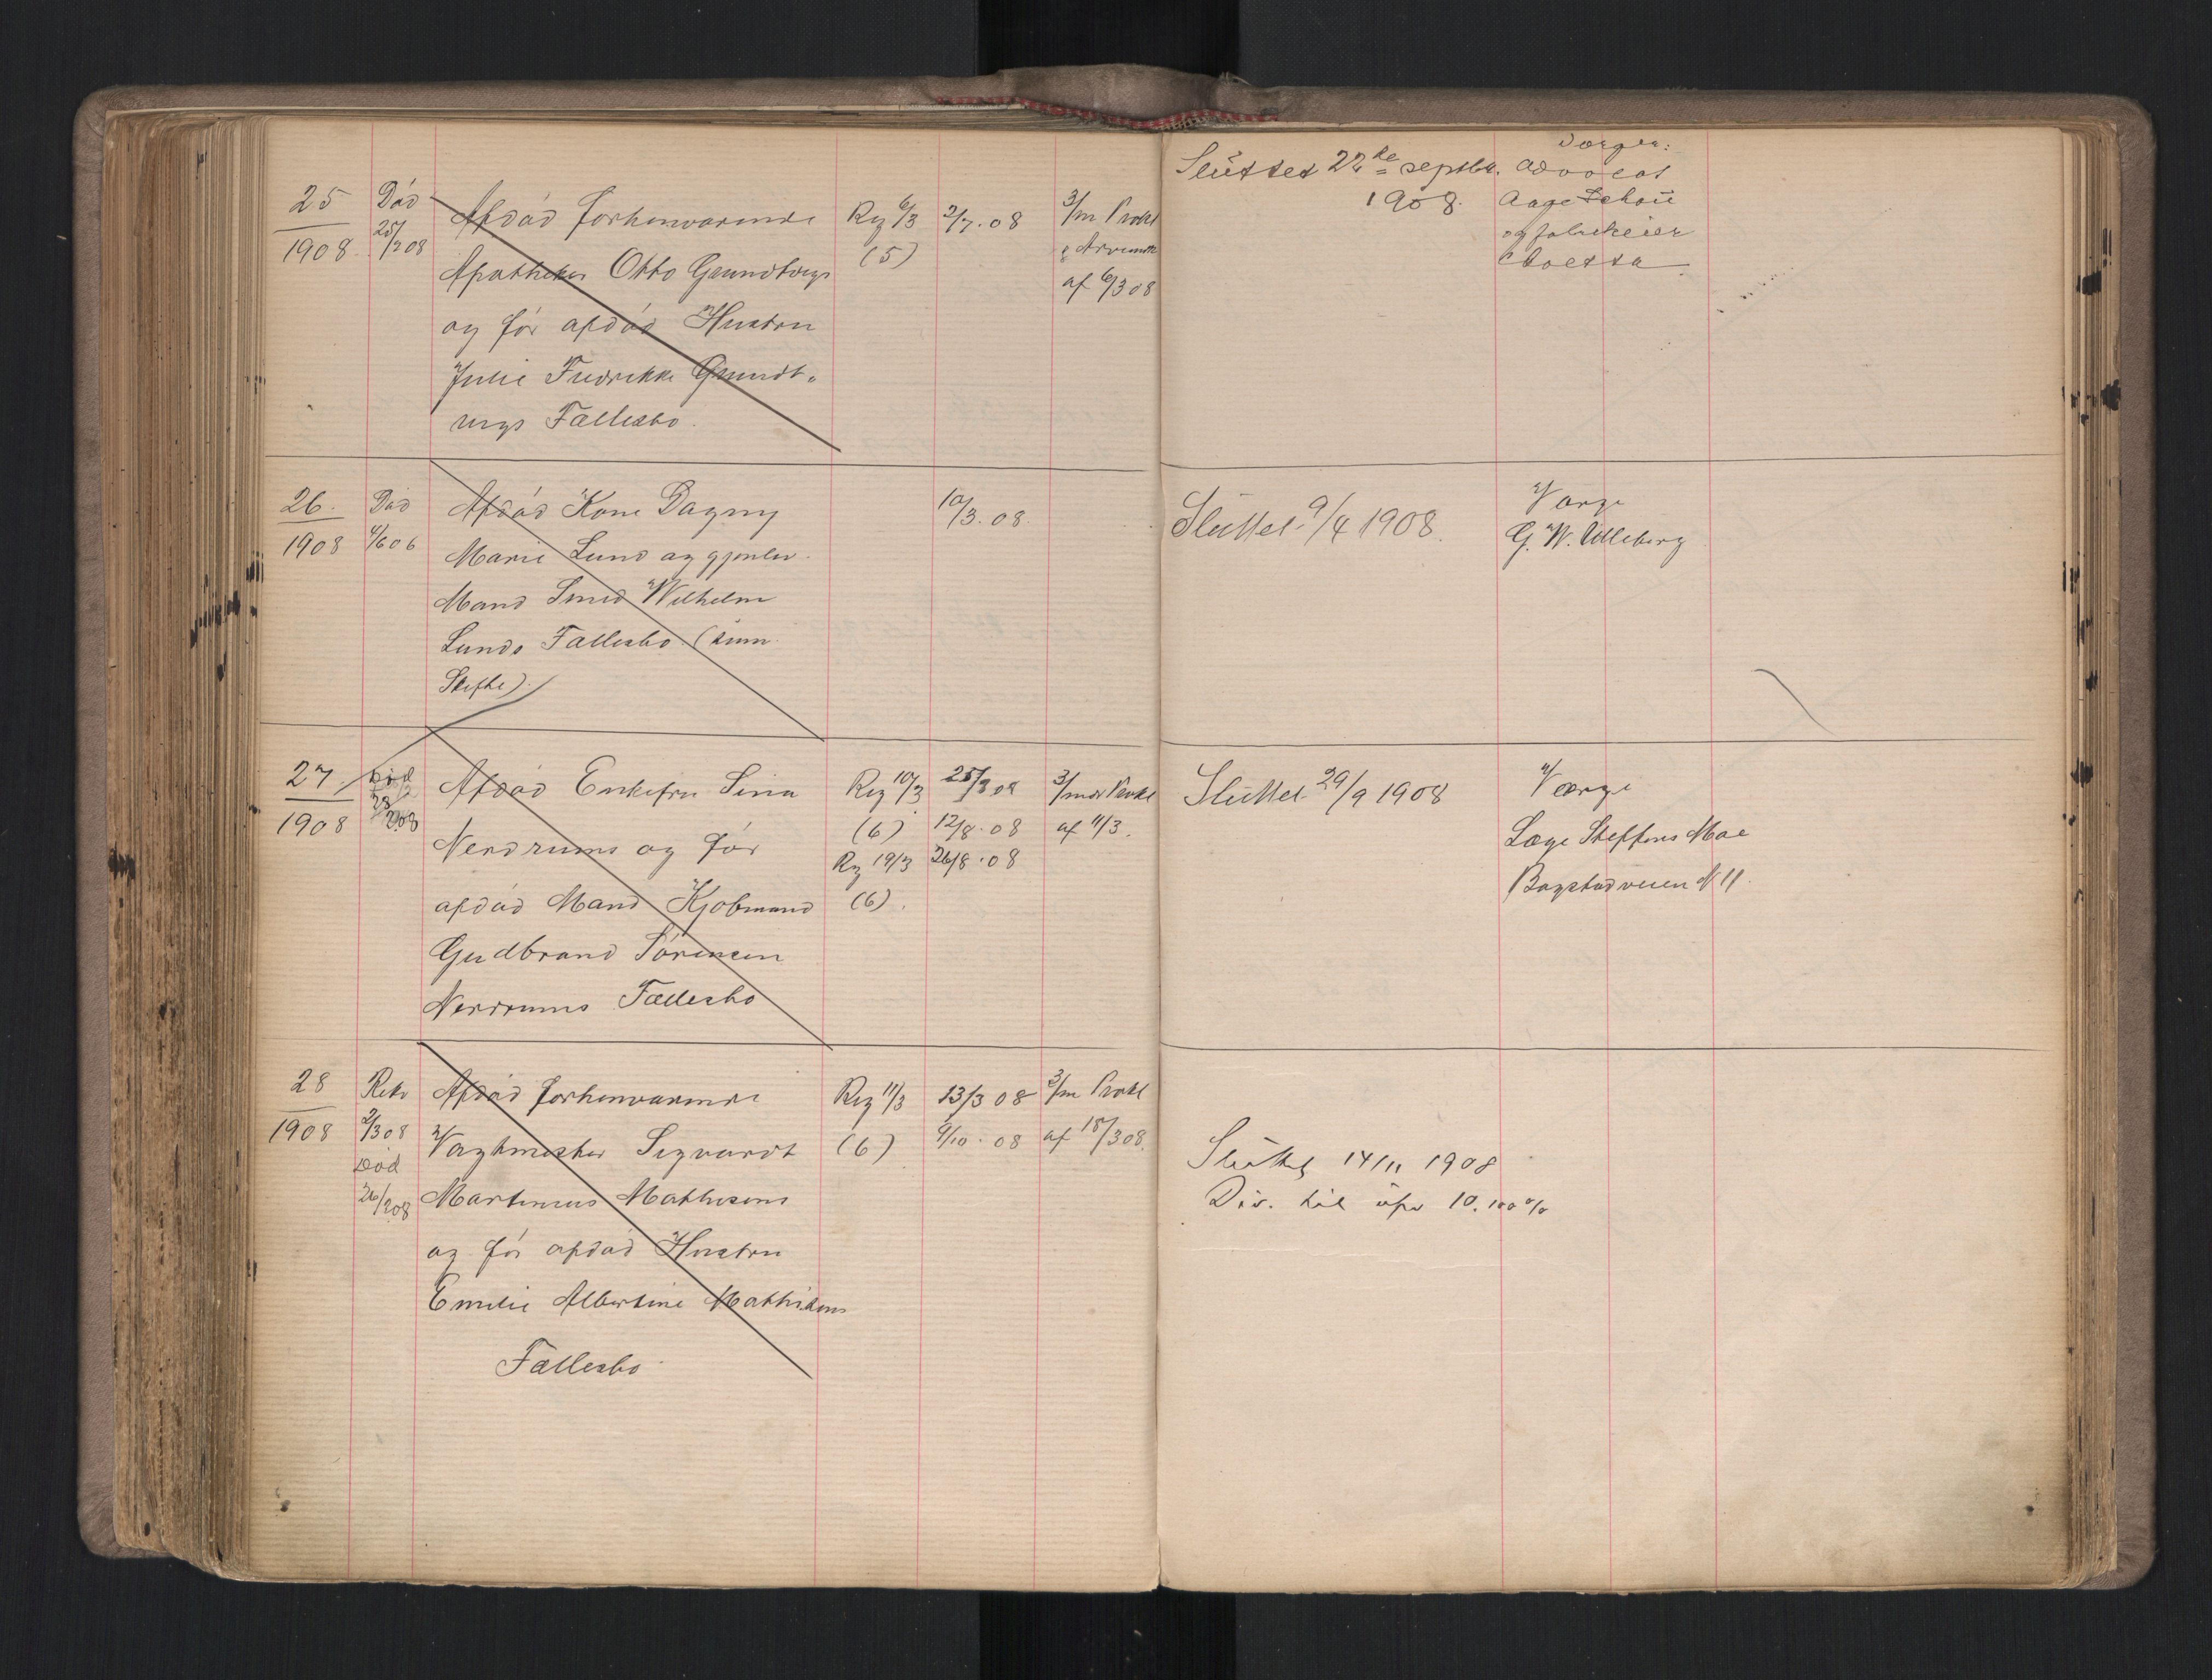 25
1908
Död
25/2 08
Afdöd forhenværende
Apotheker Otto Grundtvigs
og før afdöd Hustru
Julie Fredrikke Grundt-
vigs Fællesbo.
Rg 6/3
(5)
2/7. 08
3/m Prokl
af 6/3 08
Sluttet 22de septbr.
1908.
Værger:
Advocat
Aage Schou
og fabrikeier
26.
1908
Död
4/6 06
Afdöd Kone Dagny
Marie Lund og gjenlev.
Mand Smed Wilhelm
Lunds Fællesbo. (sum.
Skifte).
10/3. 08.
Sluttet 9/4 1908.
Værge
G. W. Ulleberg
27.
1908
Död
28/2 08
Afdöd Enkefru Sina
Nerdrums og før
afdöd Mand Kjøbmand
Gudbrand Sörensen
Nerdrums Fællesbo
Rg 10/3
(6)
Rg 19/3
(6).
25/3 08
12/8. 08
26/8. 08
3/mdr Prokl
af 11/3.
Sluttet 29/9 1908
Værge
Læge Steffens Moe
Bogstadveien N 11.
28
1908
Rekv
2/3 08
Död
26/2 08
Afdöd forhenværende
Vagtmester Sigvardt
Martinius Mathisens
og før afdöd Hustru
Emilie Albertine Mathisens
Fællesbo
Rg 11/3
(6)
13/3 08
9/10. 08
3/m Prokl
af 18/3 08.
Sluttet 14/11 1908
Div. til upr 10. 100 %